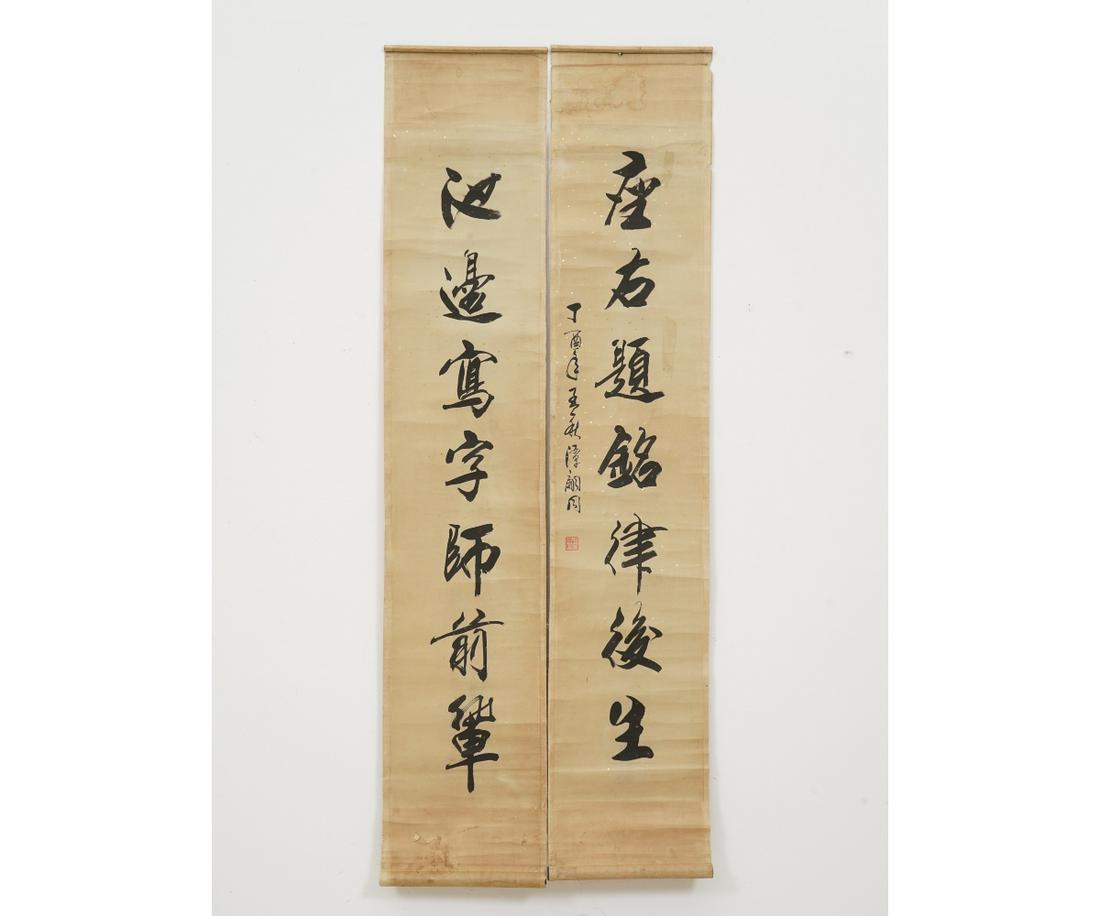 座右題銘律後生
丁酉年孟秋譚嗣同
池邊寫字師前輩